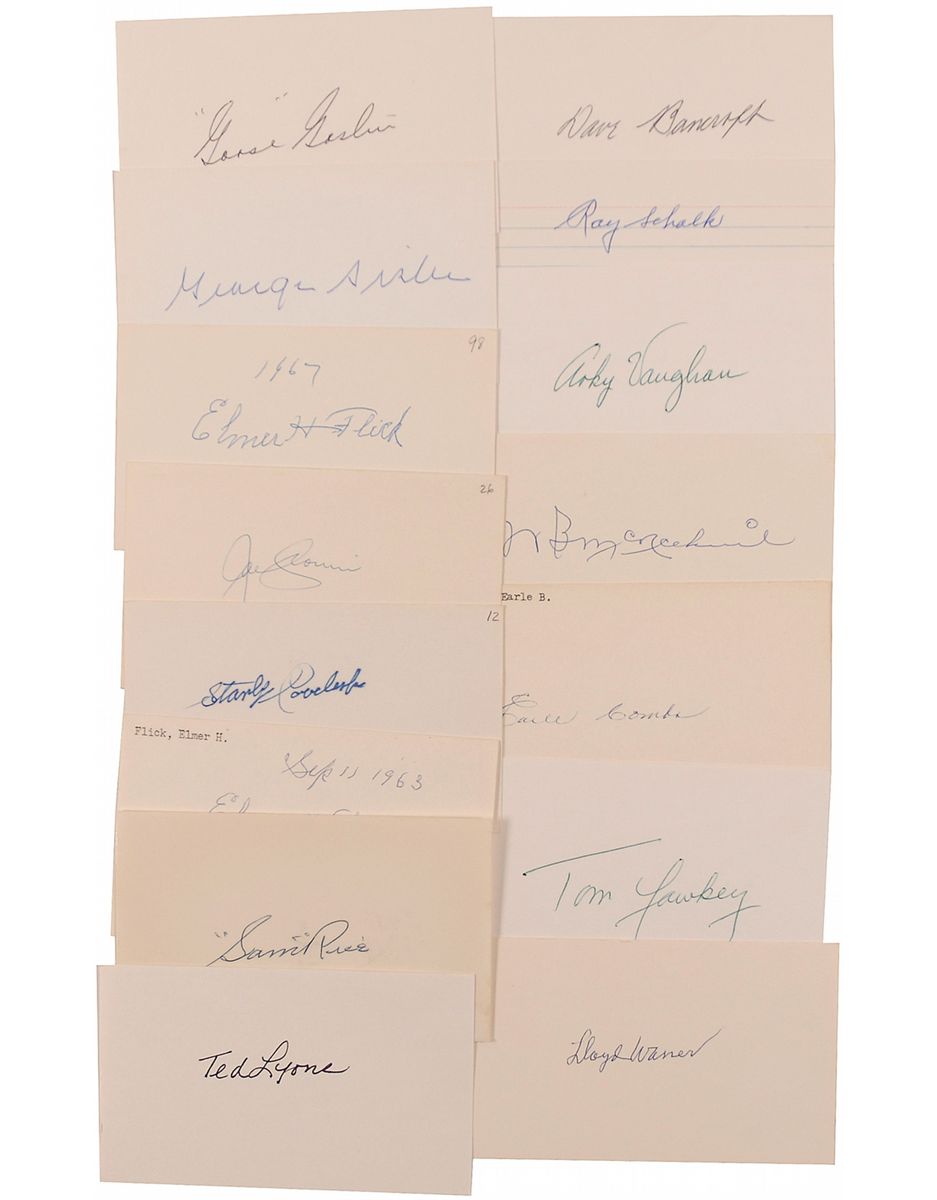 "Goose" Goslin
George Sisler
98
1967
Elmer H Flick
26
Joe Cronin
12
Stanley Coveleski
Flick, Elmer H.
Sep 11 1963
"Sam" Rice
Ted Lyons
Dave Bancroft
Ray Schalk
Arky Vaughan
W B McKechnie
Earle B.
Earle Combs
Tom Yawkey
Lloyd Waner